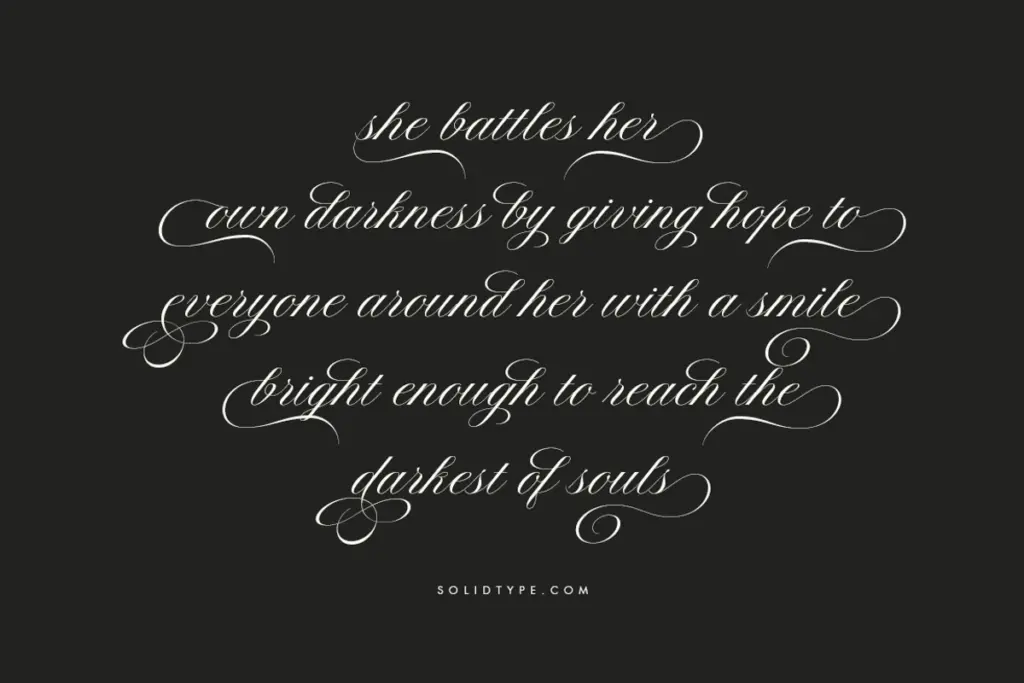 she battles her
own darkness by giving hope to
everyone around her with a smile
bright enough to reach the
darkest of souls
SOLIDTYPE.COM